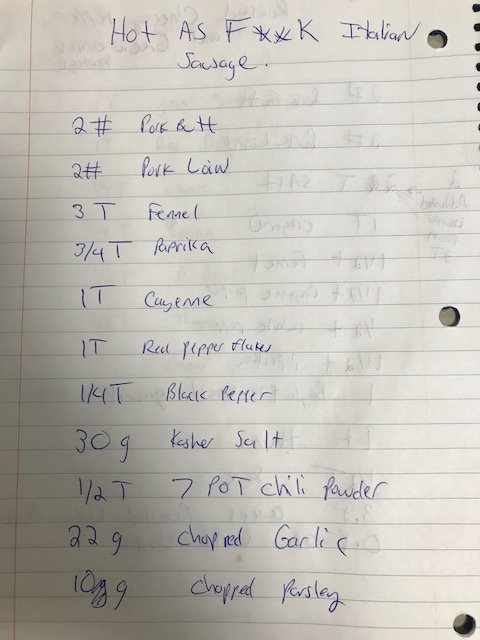 Hot As F**K Italian
Sausage.
2# Pork Butt
2# Pork Loin
3 T Fennel
3/4 T Paprika
1T Cayenne
1T Red pepper flakes
1/4 T Black Pepper
30 g Kosher Salt
1/2 T 7 POT chili Powder
22 g chopped Garlic
10 g chopped Parsley